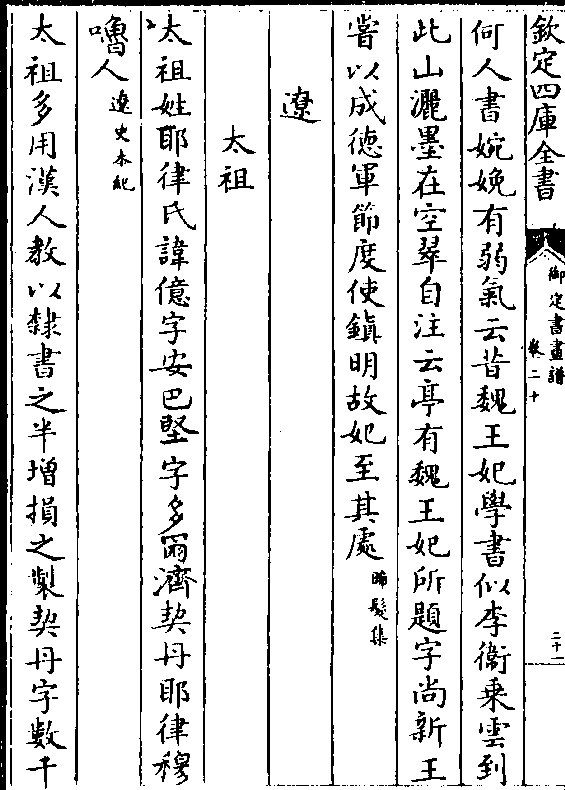 欽定四庫全書
御定書畫譜
卷二十
二十一
何人書婉娩有弱氣云昔魏王妃學書似李衞乗雲到
此山灑墨在空翠自注云亭有魏王妃所題字尚新王
嘗以成徳軍節度使鎮明故妃至其處晞髮集
遼
太祖
太祖姓耶律氏諱億字安巴堅字多爾濟契丹耶律穆
嚕人遼史本紀
太祖多用漢人教以隸書之半增損之製契丹字數千